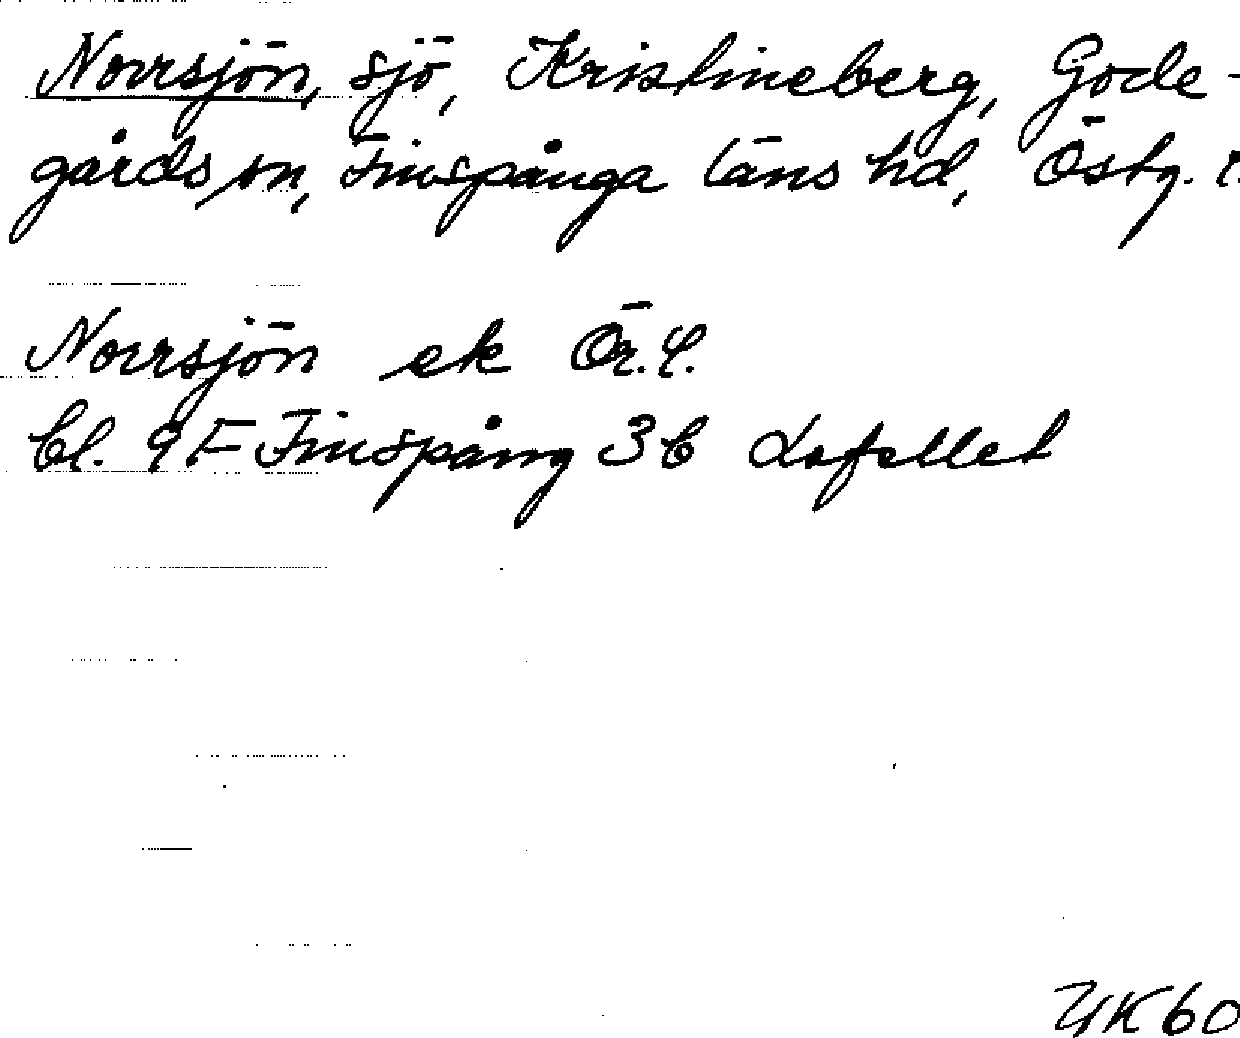 Norrsjön, sjö, Kristineberg, Gode-
gårds sn, Finspånga läns hd, Östg. l.
Norrsjön ek
bl. 9F Finspång 3b
UK60